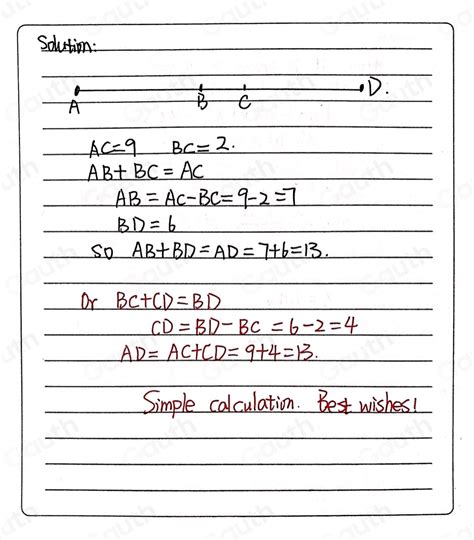 Solution:
A B C D.
AC=9 BC=2.
AB+BC=AC
AB=AC-BC=9-2=7
BD=6
so AB+BD=AD=7+6=13.
Or BC+CD=BD
CD=BD-BC=6-2=4
AD=AC+CD=9+4=13.
Simple calculation. Best wishes!